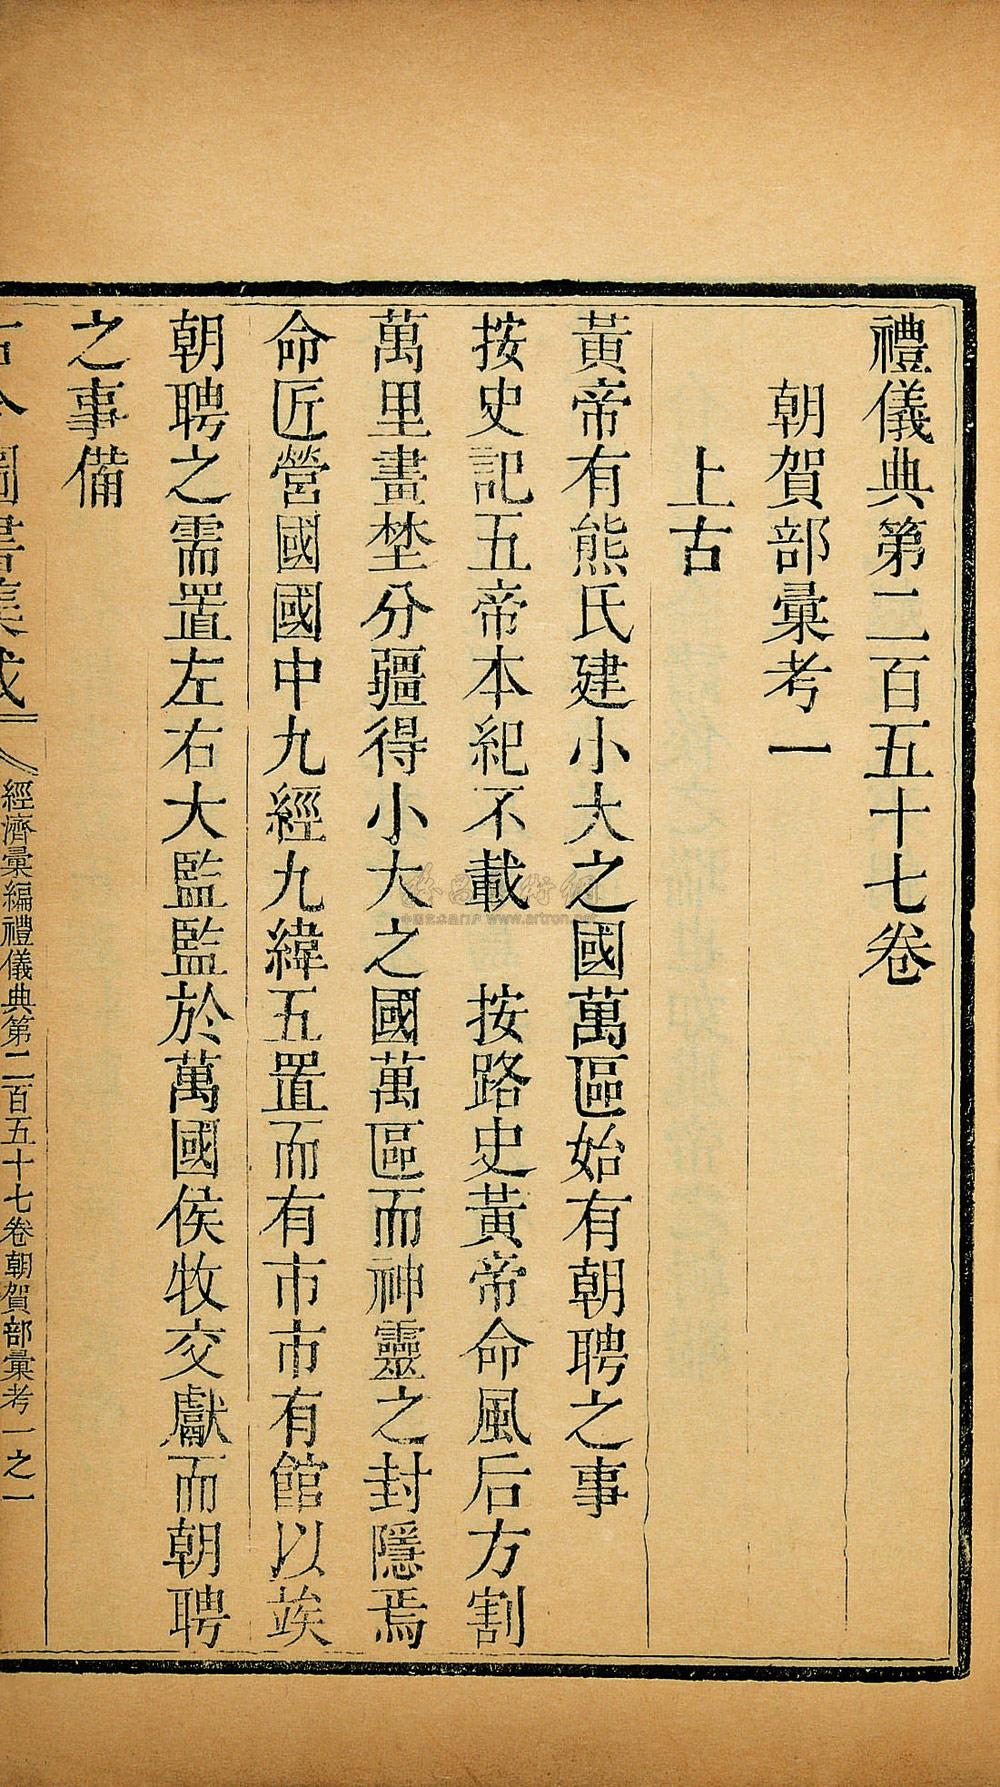 禮儀典第二百五十七卷
朝賀部彙考一
上古
黃帝有熊氏建小大之國萬區始有朝聘之事
按史記五帝本紀不載　按路史黃帝命風后方割
萬里畫埜分疆得小大之國萬區而神靈之封隱焉
命匠營國國中九經九緯五置而有市市有館以竢
朝聘之需置左右大監監於萬國侯牧交獻而朝聘
之事備
古今圖書集成
經濟彙編禮儀典第二百五十七卷朝賀部彙考一之一
www.artron.net